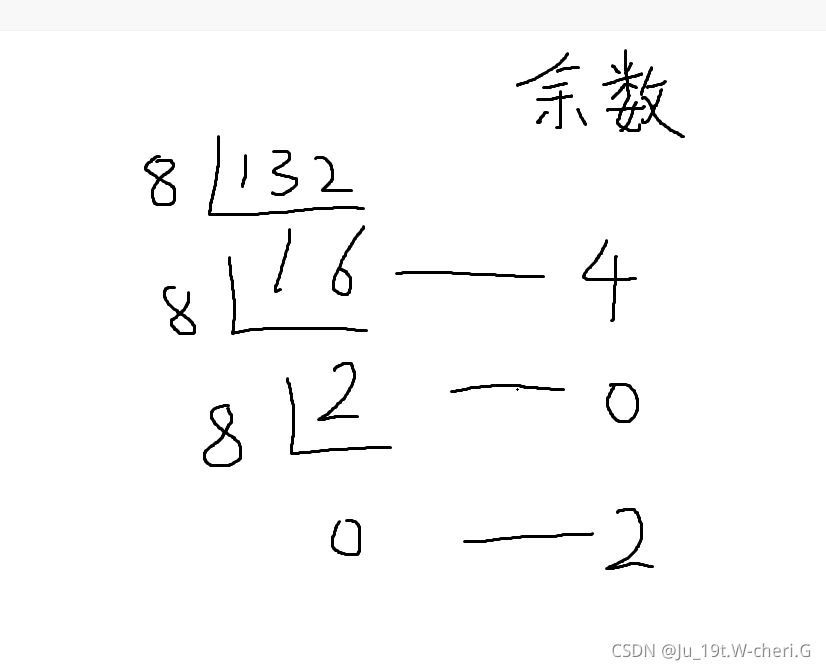 余数
8 132
8 16 — 4
8 2 — 0
0 — 2
CSDN @Ju_19t.W-cheri.G